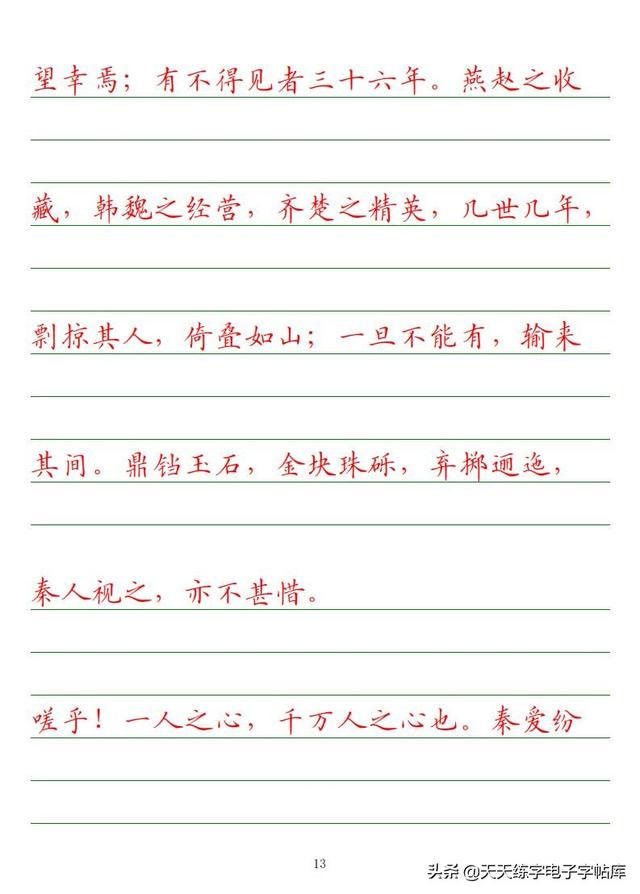 望幸焉；有不得见者三十六年。燕赵之收
藏，韩魏之经营，齐楚之精英，几世几年，
剽掠其人，倚叠如山；一旦不能有，输来
其间。鼎铛玉石，金块珠砾，弃掷逦迤，
秦人视之，亦不甚惜。
嗟乎！一人之心，千万人之心也。秦爱纷
13
头条 @天天练字电子字帖库